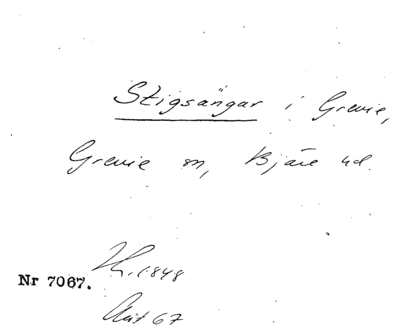 Stigsängar i Grevie,
Grevie sn, Bjäre hd.
H. 1848
Nr 7067.
67